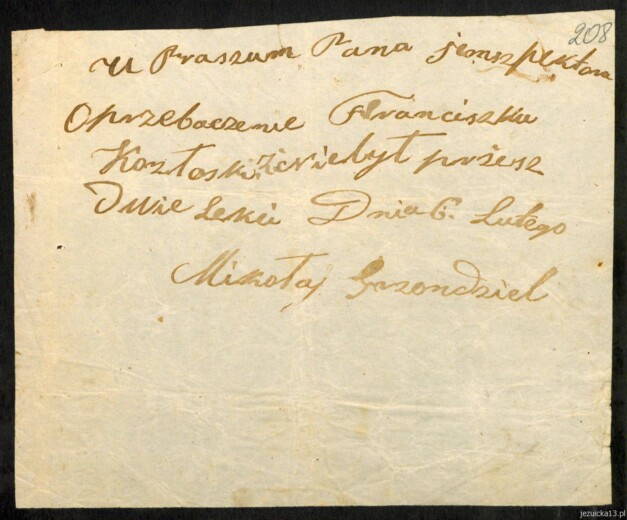 208
U Praszum Pana jemszpektora
Oprzebaczenie Franciszku
Kozłosk że niebył przesz
Dwie Lekci Dnia 6. Lutego
Mikołaj Grzondziel
jezuicka13.pl